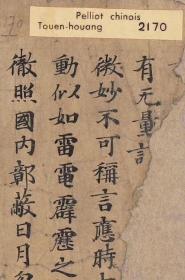 Pelliot chinois
Touen-houang 2170
70
有无量言
微妙不可稱言應時
動似如雷電霹靂之
徹照國内鄣蔽日月